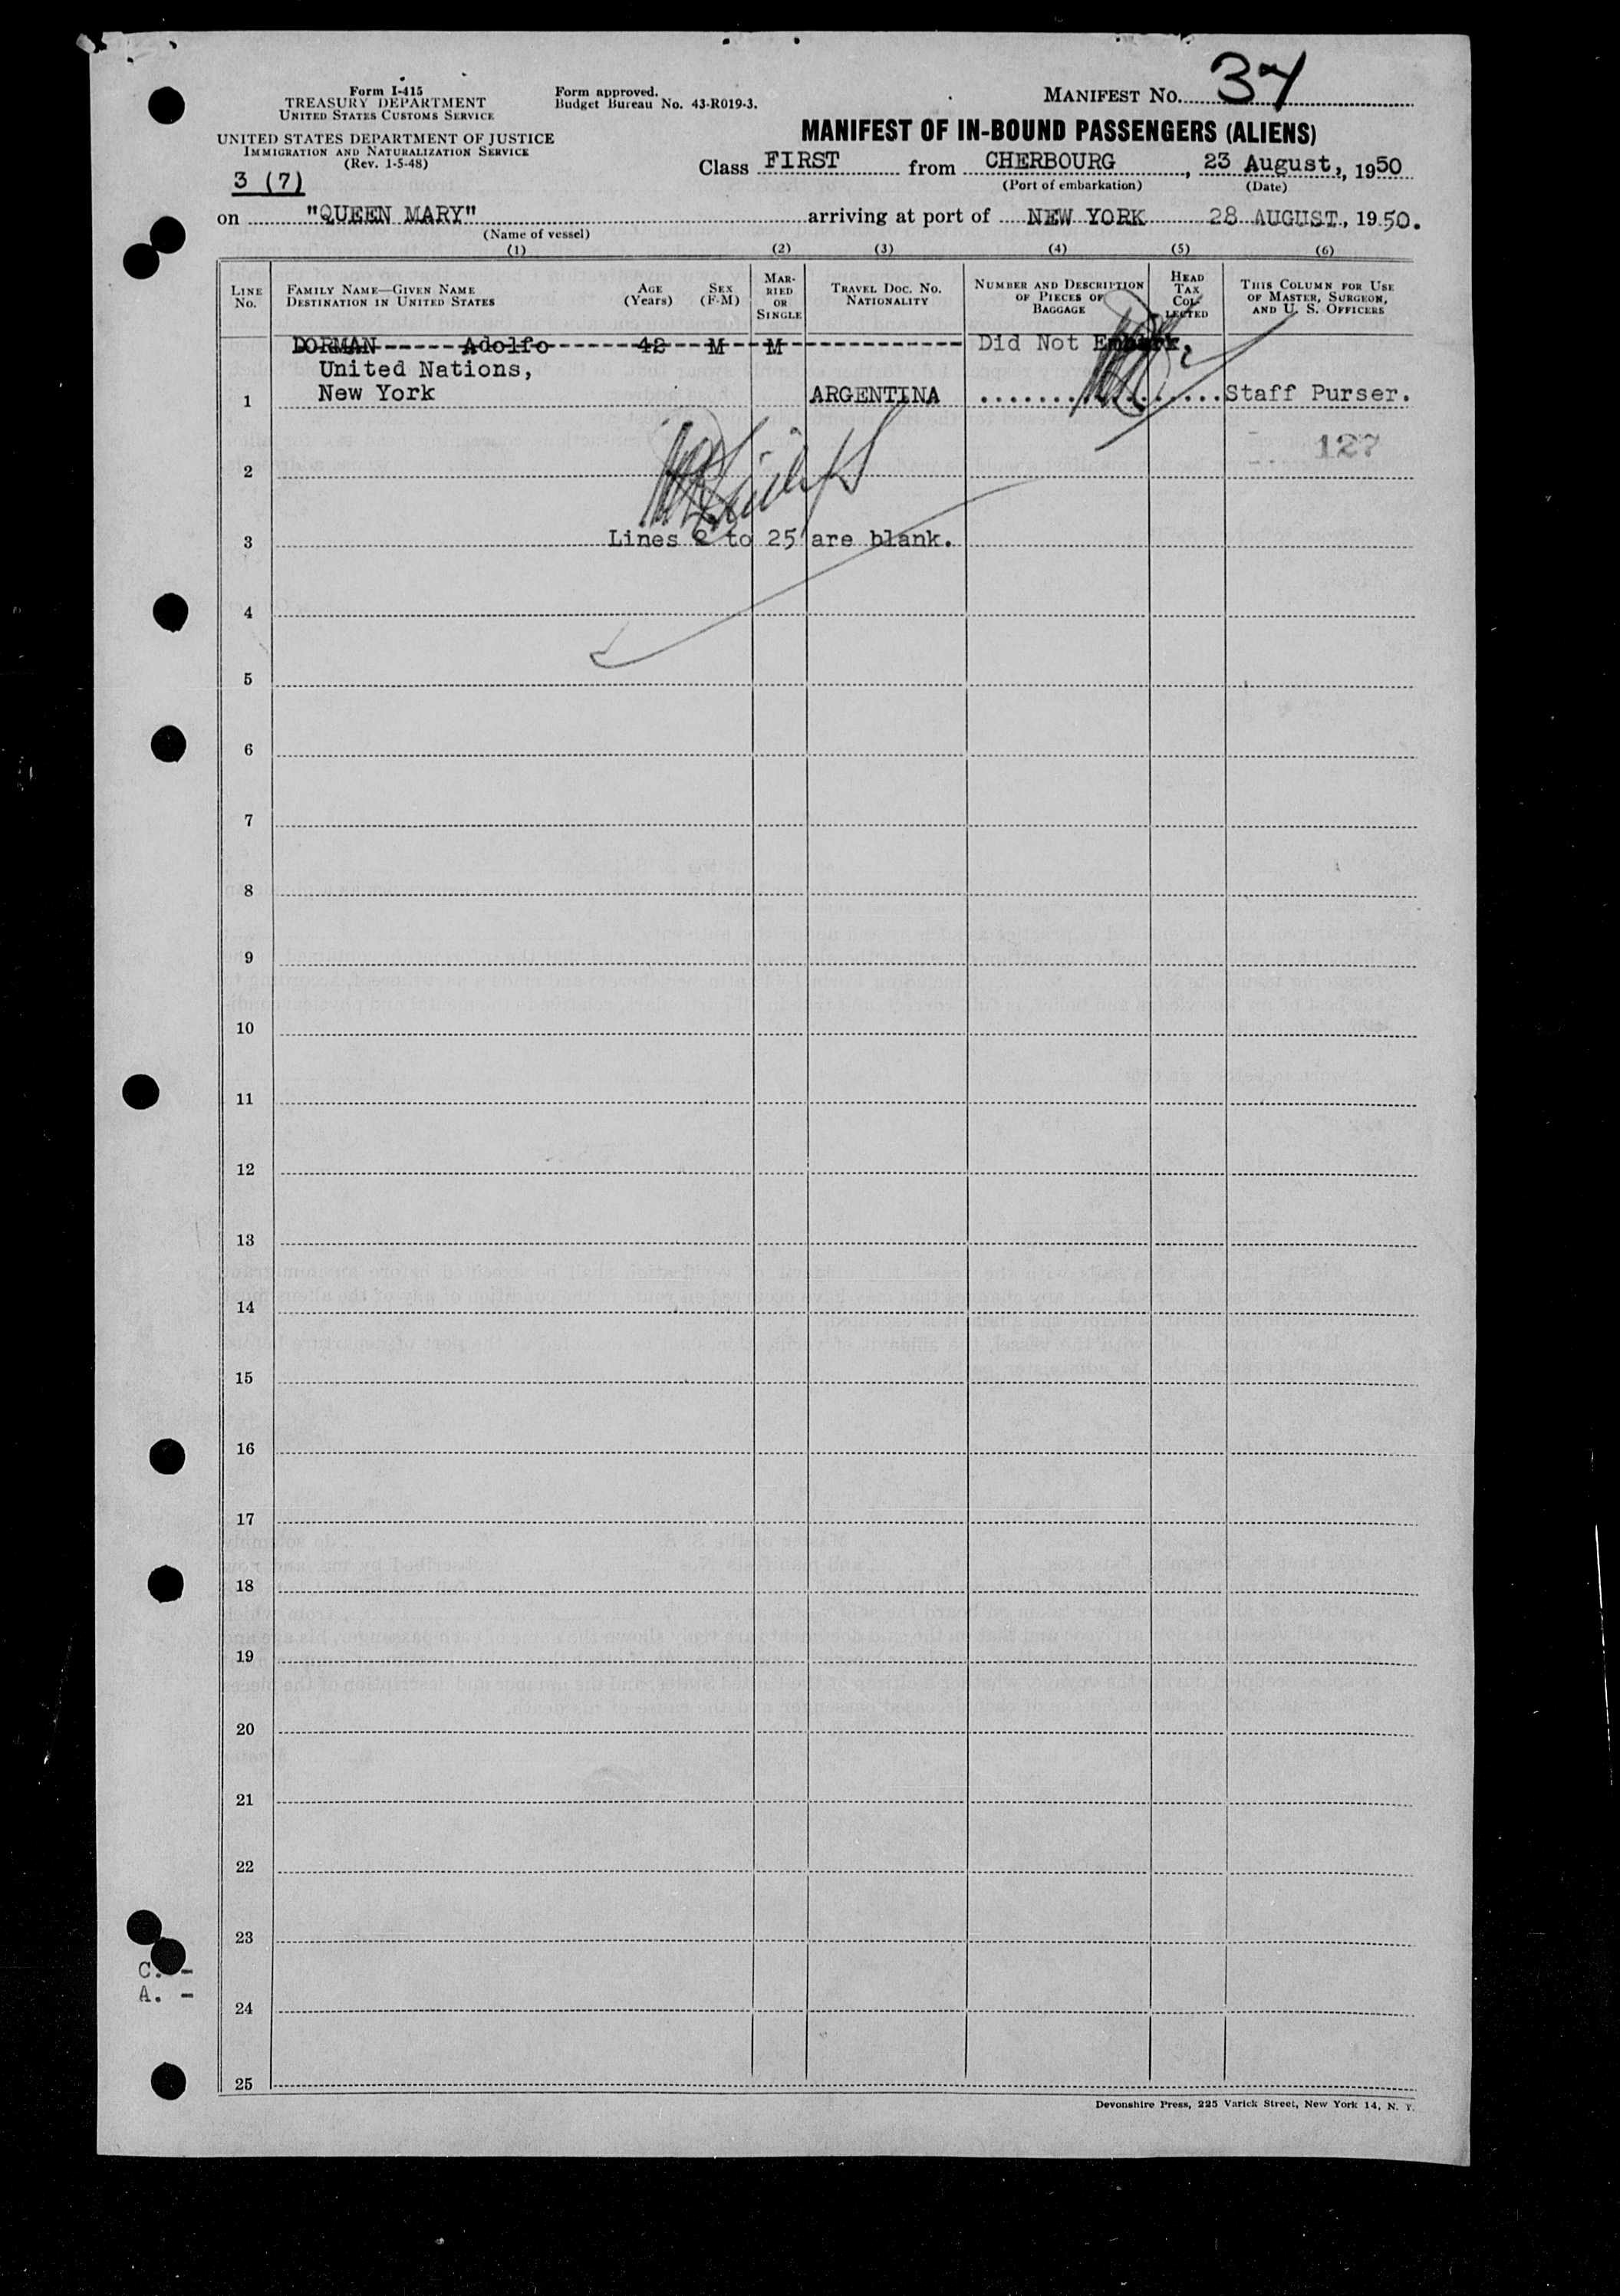 Form I-415
TREASURY DEPARTMENT
UNITED STATES CUSTOMS SERVICE
UNITED STATES DEPARTMENT OF JUSTICE
IMMIGRATION AND NATURALIZATION SERVICE
(Rev. 1-5-48)
Form approved.
Budget Bureau No. 43-R019-3.
MANIFEST NO. 34
MANIFEST OF IN-BOUND PASSENGERS (ALIENS)
Class FIRST from CHERBOURG, 23 August, 1950
(Port of embarkation) (Date)
3 (7)
on "QUEEN MARY" arriving at port of NEW YORK 28 AUGUST, 1950.
(Name of vessel)
(1) (2) (3) (4) (5) (6)
LINE NO.
FAMILY NAME—GIVEN NAME
DESTINATION IN UNITED STATES
AGE (Years)
SEX (F-M)
MAR-
RIED
OR
SINGLE
TRAVEL DOC. NO.
NATIONALITY
NUMBER AND DESCRIPTION
OF PIECES OF
BAGGAGE
HEAD
TAX
COL-
LECTED
THIS COLUMN FOR USE
OF MASTER, SURGEON,
AND U. S. OFFICERS
DORMAN Adolfo 42 M M Did Not Embark.
United Nations,
1 New York ARGENTINA Staff Purser.
127
2
3 Lines 2 to 25 are blank.
4
5
6
7
8
9
10
11
12
13
14
15
16
17
18
19
20
21
22
23
C. -
A. -
24
25
Devonshire Press, 225 Varick Street, New York 14, N. Y.